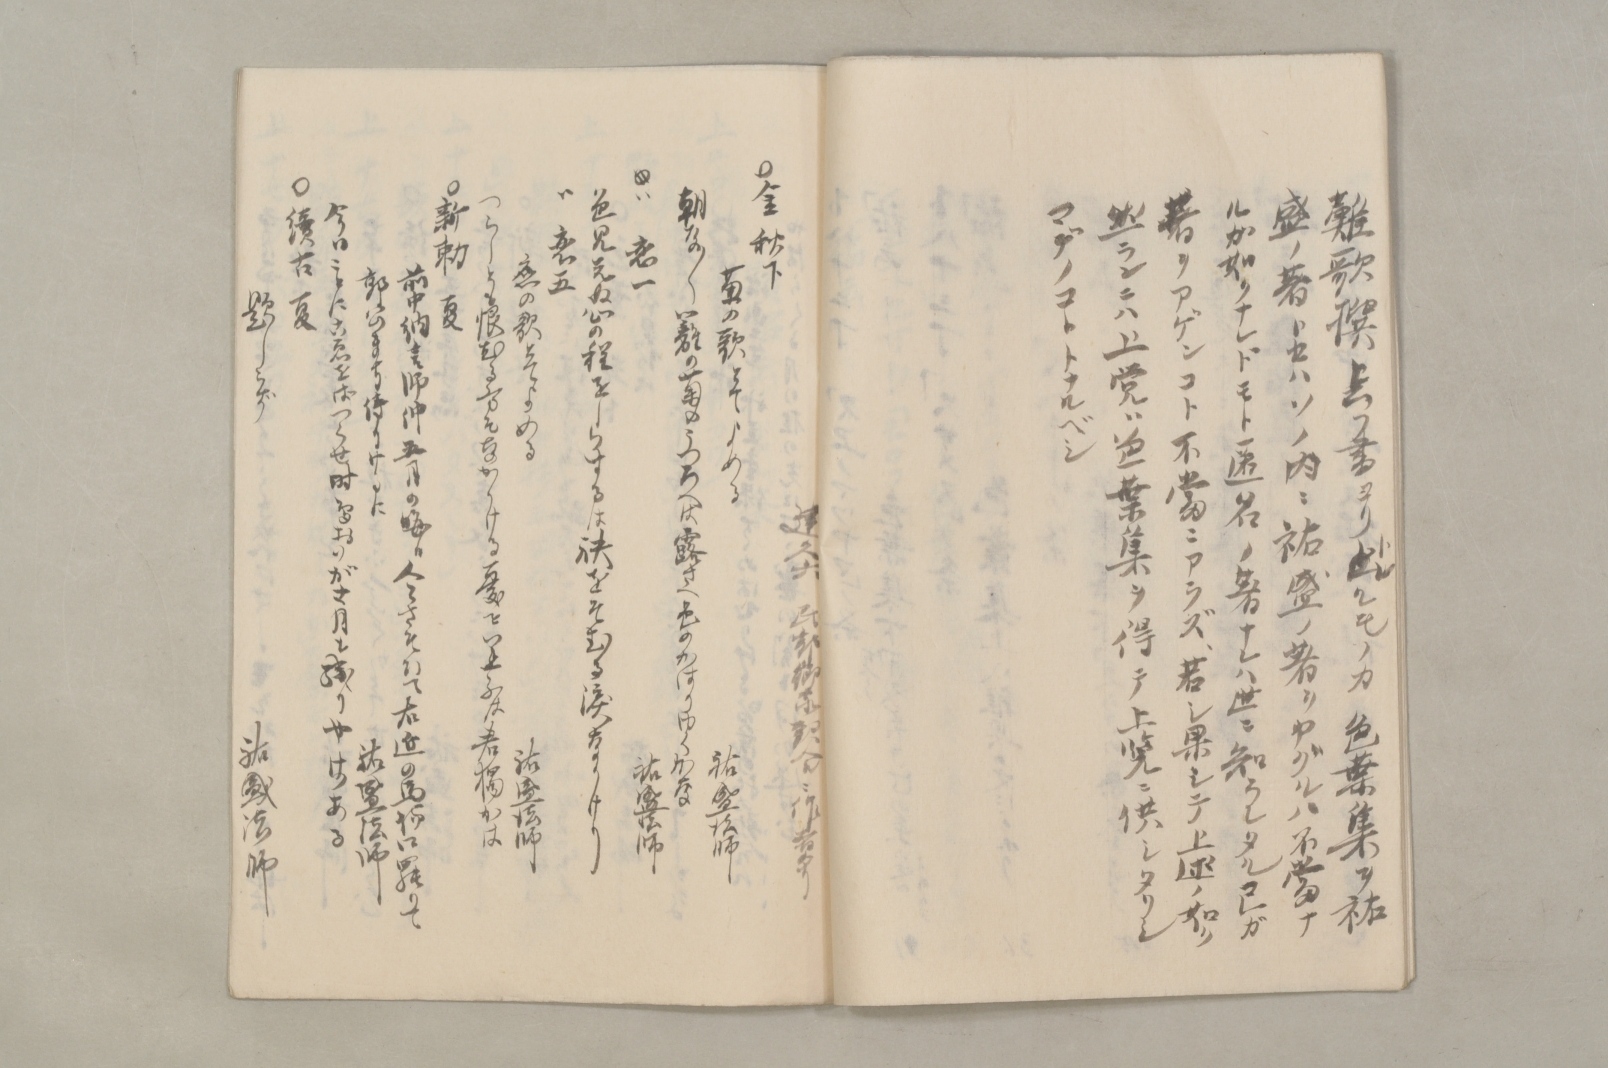 難歌撰ト云フ書ヨリ出ルモノカ 色葉集ヲ祐
盛ノ著ト セハソノ内ニ祐盛ノ著ヲ擧グルハ不當ナ
ルガ如クナレドモト匿名ノ著ナレハ世ニ知ラレタルコレガ
著ヲアゲンコト不當ニアラズ、若シ果シテ上述ノ如ク
然ランニハ上覚ハ色葉集ヲ得テ上覧ニ供シタリシ
マデノコトトナルベシ
建久六 民部卿家歌合ニ作者タリ
○金 秋下
菊の歌とてよめる
祐盛法師
朝な〱籬の菊のうつろへは露さへ色のかはりゆくかな
〃 恋一
祐盛法師
色見えぬ心の程をしらするは袂をそむる涙なりけり
〃 恋五
恋の歌とてよめる
祐盛法師
つらしとて恨むる方そなかりける憂をいとふは君獨かは
○新勅 夏
前中納言師仲五月の晦日人々さそひて右近の馬場に罷りて
郭公まち侍りけるに
祐盛法師
今日ことにこゑをはつくせ時鳥おのが五月も残りやはある
○續古 夏
題しらず
祐盛法師